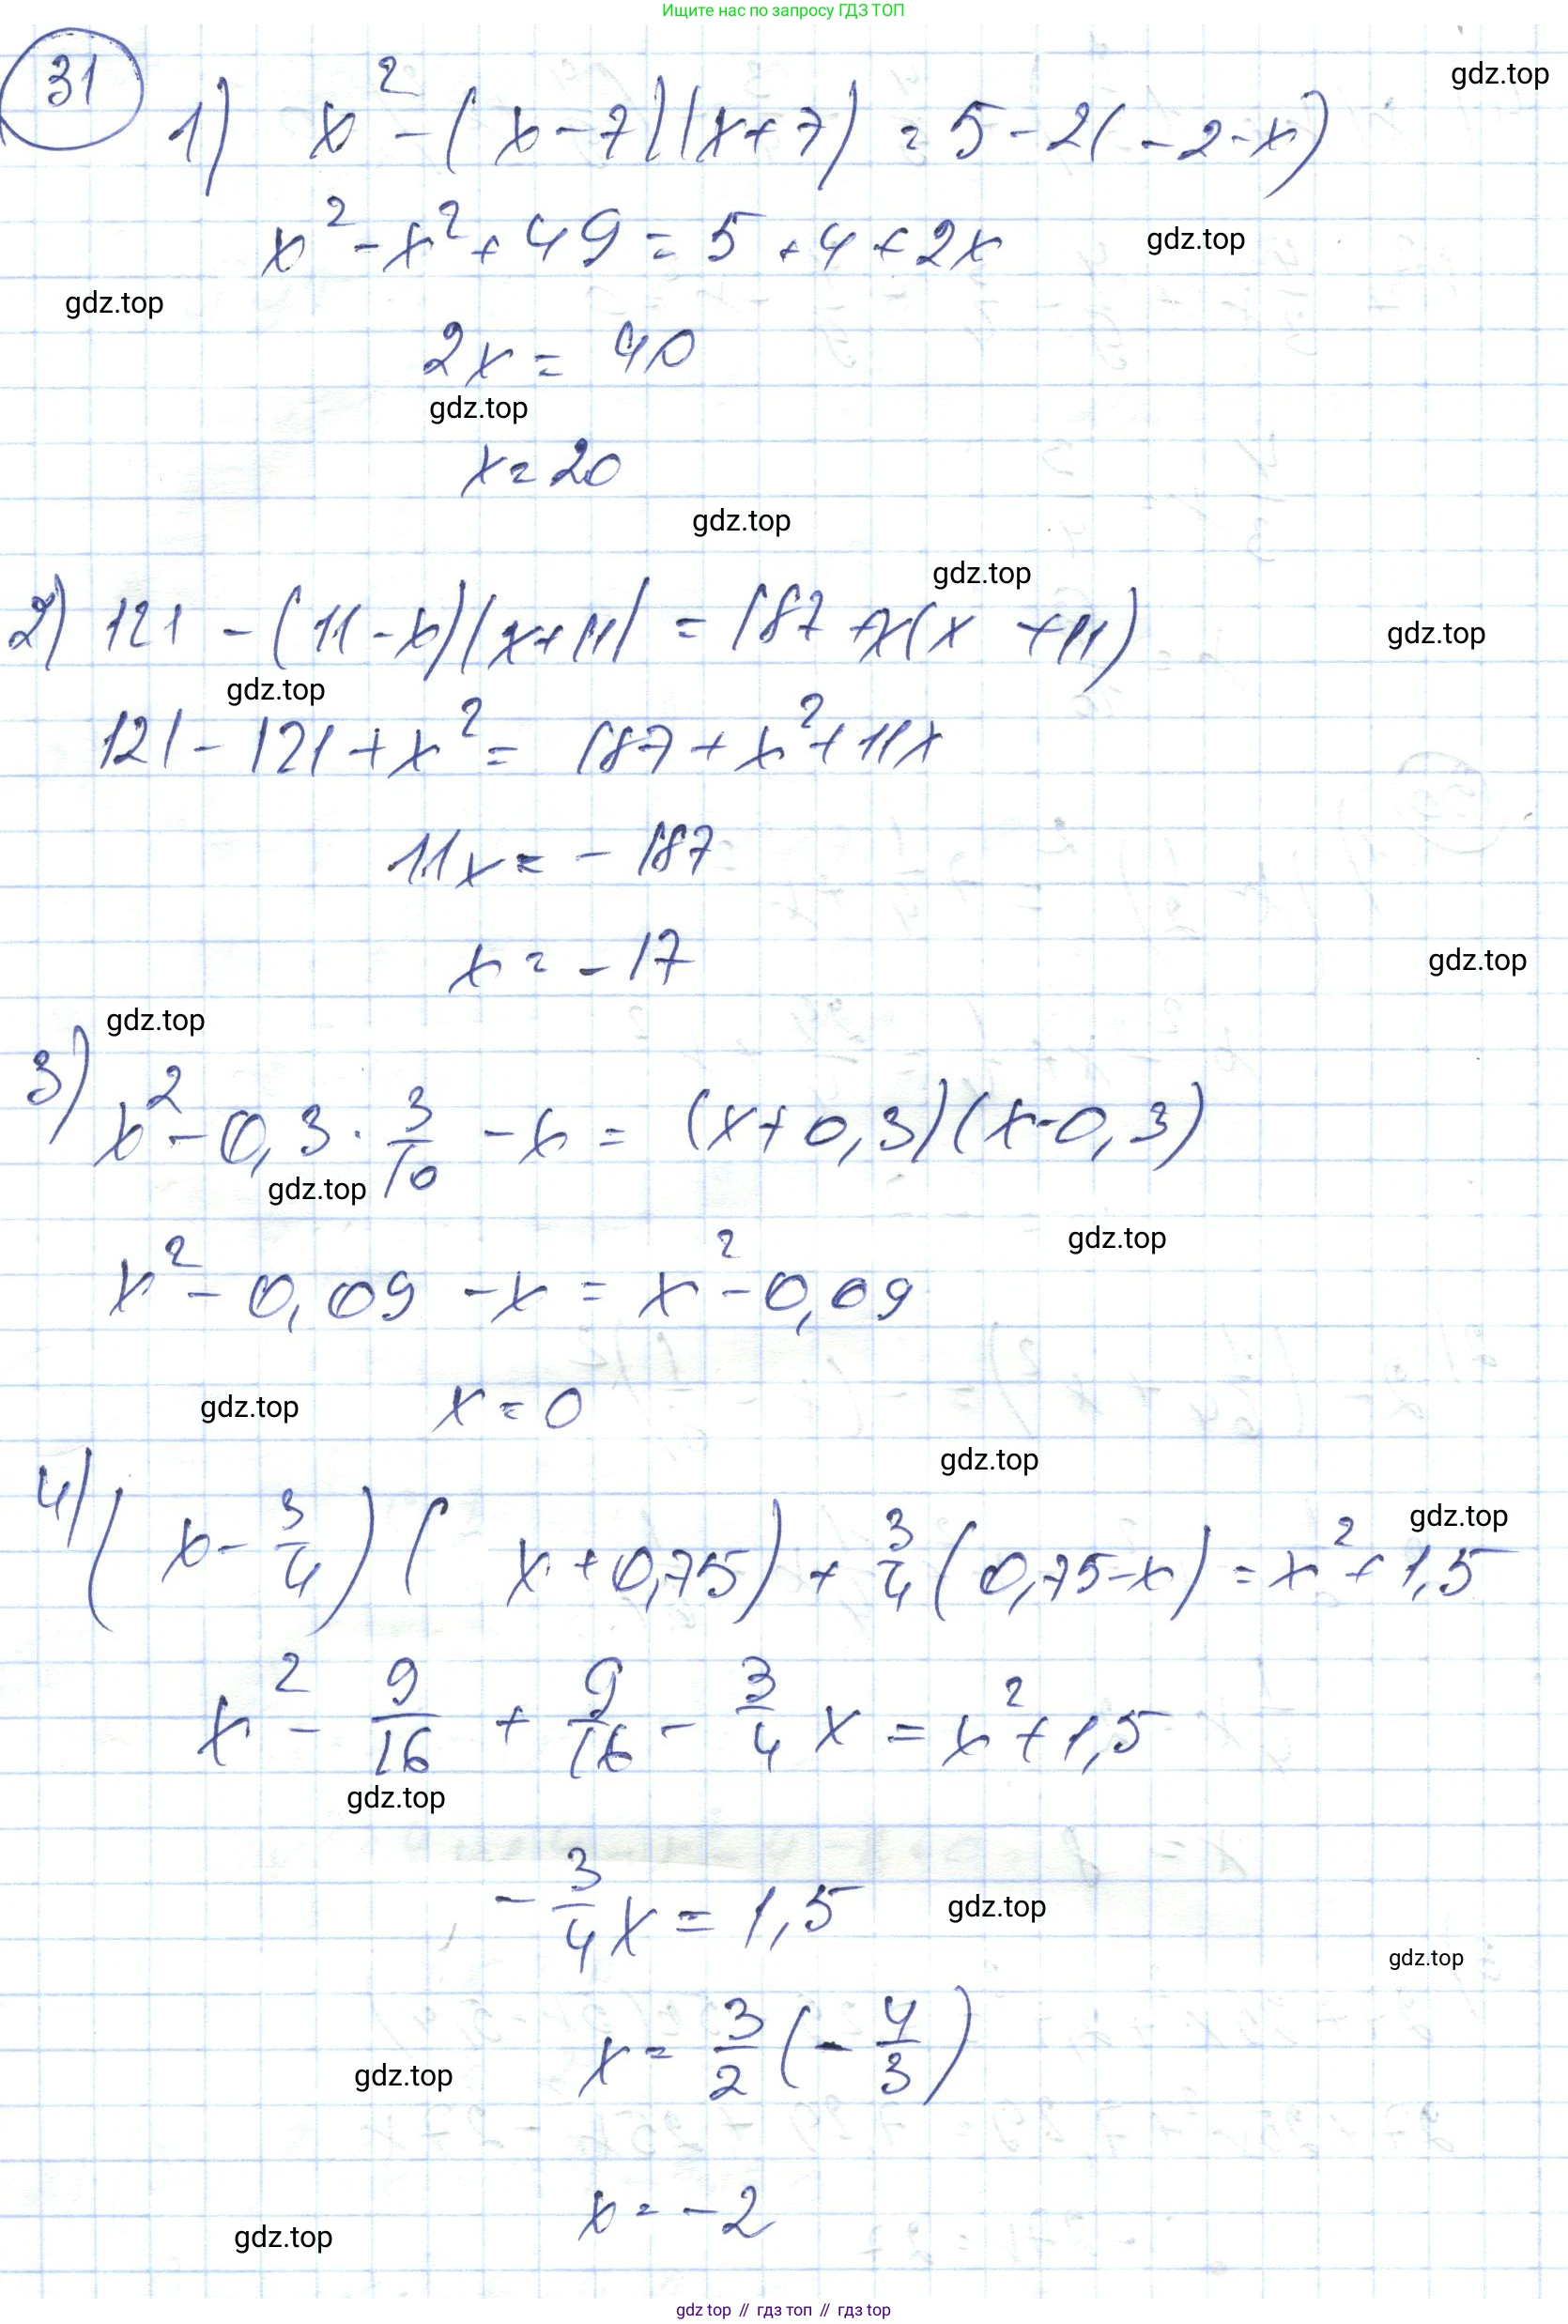 Ищите нас по запросу ГДЗ ТОП
31
gdz.top
1) x² - (x - 7)(x + 7) = 5 - 2(-2 - x)
x² - x² + 49 = 5 + 4 + 2x
gdz.top
gdz.top
2x = 40
gdz.top
x = 20
gdz.top
gdz.top
2) 121 - (11 - x)(x + 11) = 187 + x(x + 11)
gdz.top
gdz.top
121 - 121 + x² = 187 + x² + 11x
11x = - 187
x = - 17
gdz.top
gdz.top
3) x² - 0,3 · 3/10 - x = (x + 0,3)(x - 0,3)
gdz.top
gdz.top
x² - 0,09 - x = x² - 0,09
gdz.top
x = 0
gdz.top
gdz.top
4) (x - 3/4)(x + 0,75) + 3/4(0,75 - x) = x² + 1,5
x² - 9/16 + 9/16 - 3/4 x = x² + 1,5
gdz.top
- 3/4 x = 1,5
gdz.top
gdz.top
x = 3/2 (- 4/3)
gdz.top
x = - 2
gdz.top
gdz top // гдз топ // гдз top